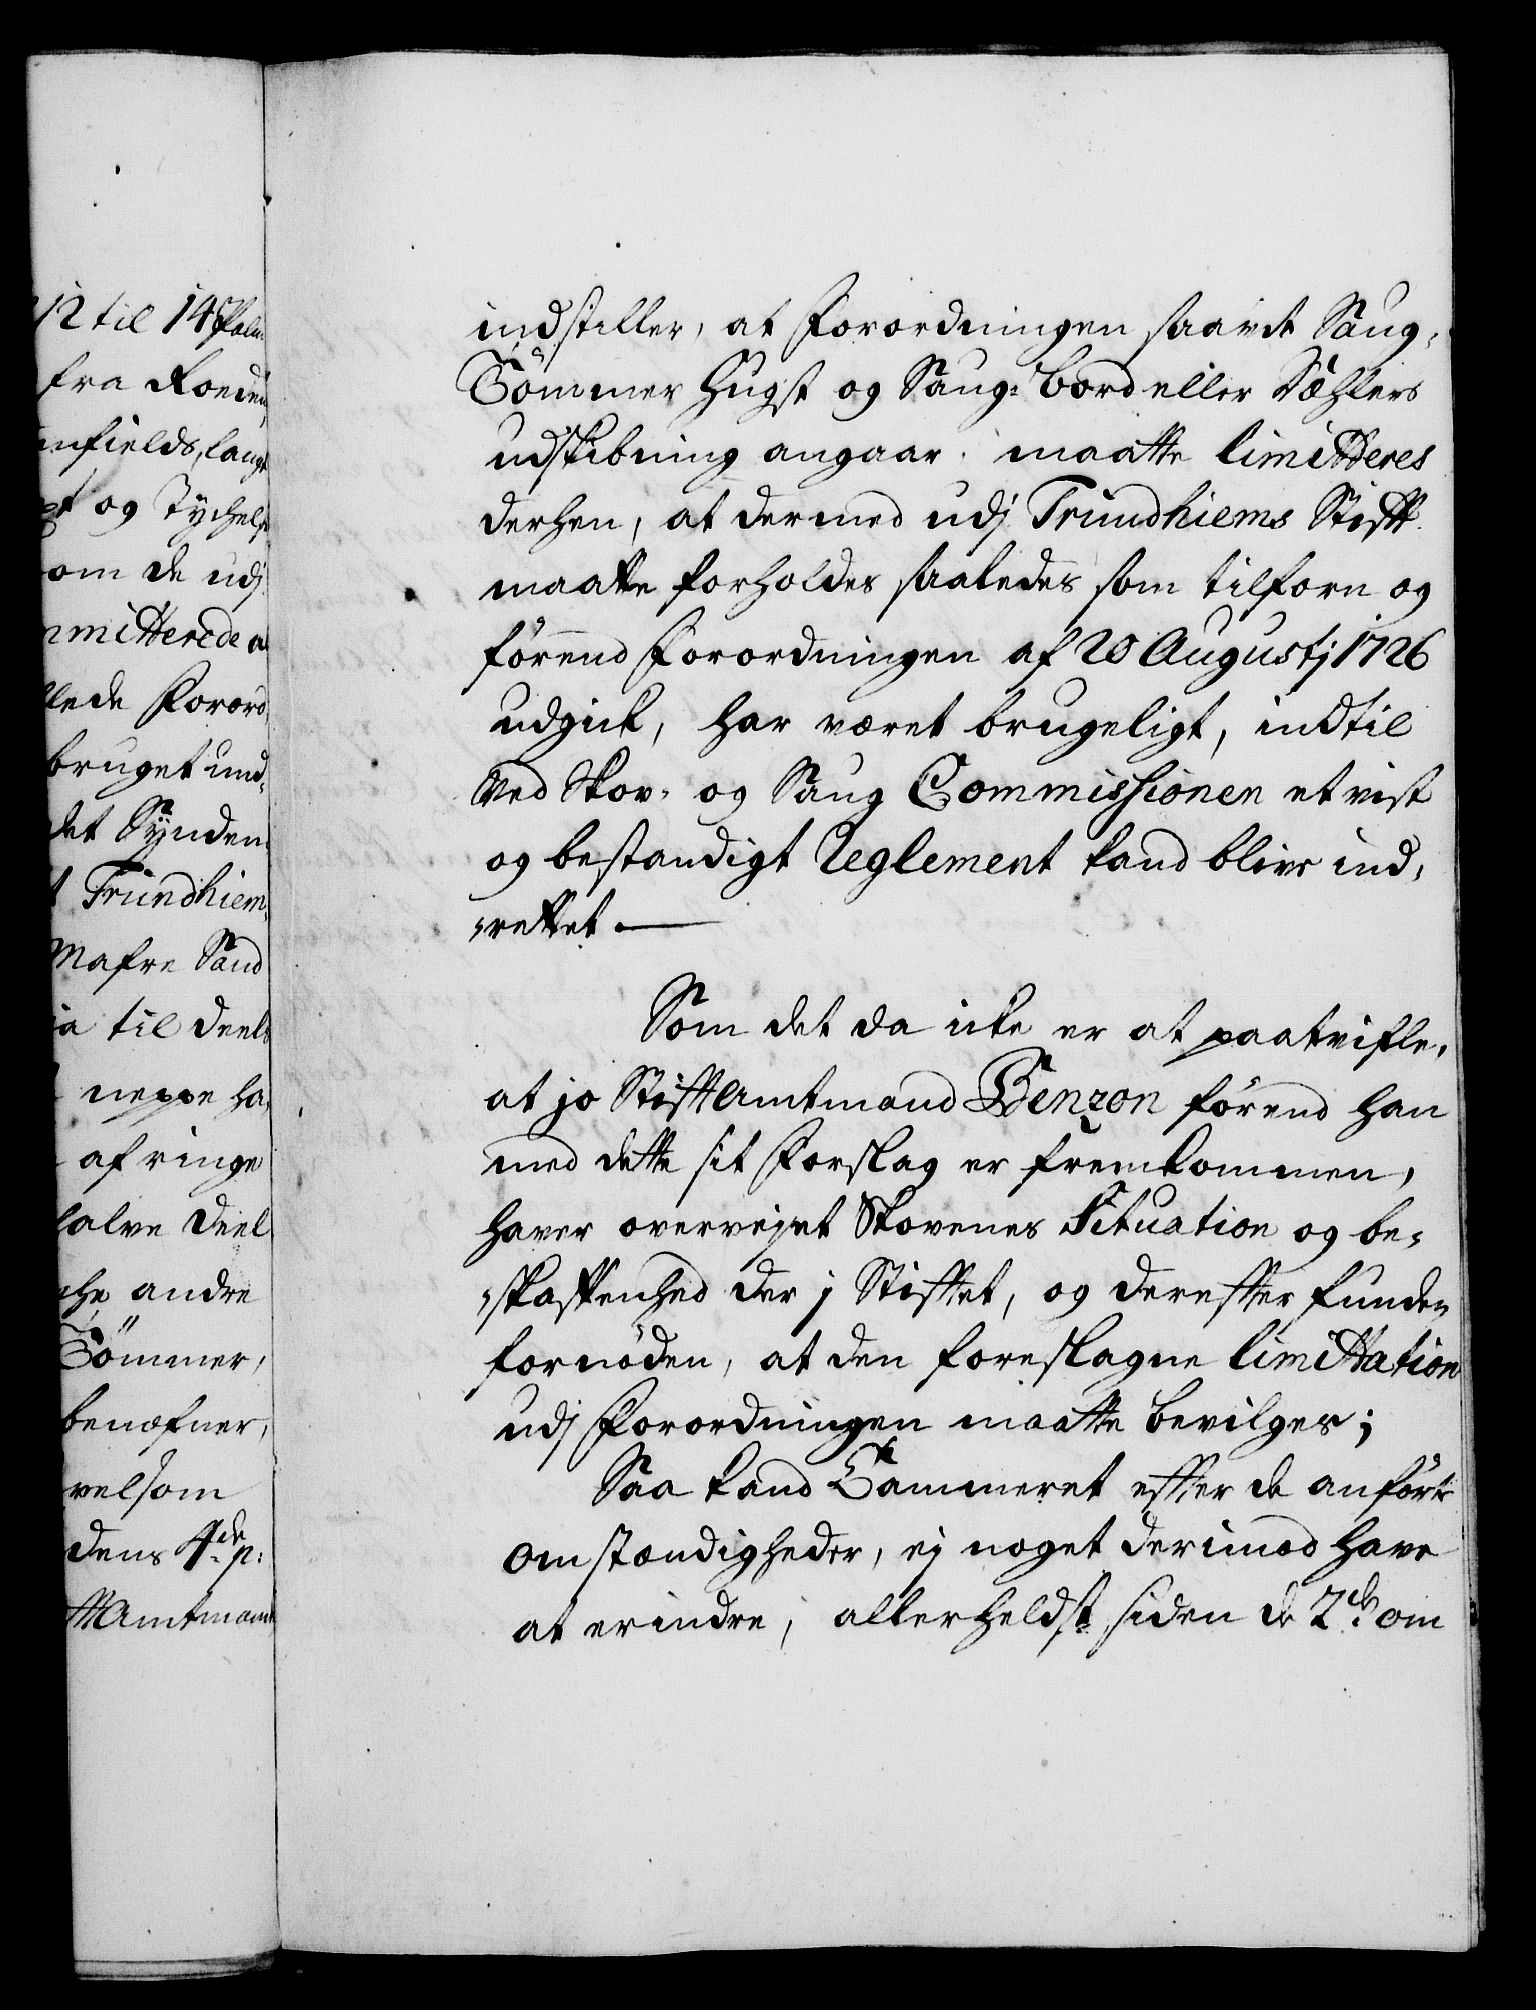 12 til 14 Palm
fra Roeden
nfields, langt
og Tychelse
om de udj
mmitterede a
lede Forord
bruget und-
det Synden
Trundhiem,
Mafre Sand
ia til deels
neppe ha,
af ringe
halve Deel
che andre
Tömmer,
benæfner,
velsom
dens 4de p:
ftAmtmand
indstiller, at Forordningen saavit Saug-
Tömmer Hugst og Saug- Bord eller Dæhlers
udskibning angaar, maatte limitteres
derhen, at dermed udj Trundhiems Stift
maatte forholdes saaledes som tilforn og
förend Forordningen af 20 Augustj 1726
udgick, har været brugeligt, indtil
ved Skov- og Saug Commissionen et vist
og bestandigt Reglement kand blive ind-
-rettet.—
Som det da icke er at paatvifle,
at jo StiftAmtmand Benzon förend han
med dette sit Forslag er fremkommen,
haver overvejet Skovenes Situation og be-
-skaffenhed der j Stiftet, og derefter funden
fornöden, at den foreslagne limittation
udj Forordningen maatte bevilges;
Saa kand Cammeret efter de anförte
omstændigheder, ej noget derimod have
at erindre, allerheldst siden de 2de om